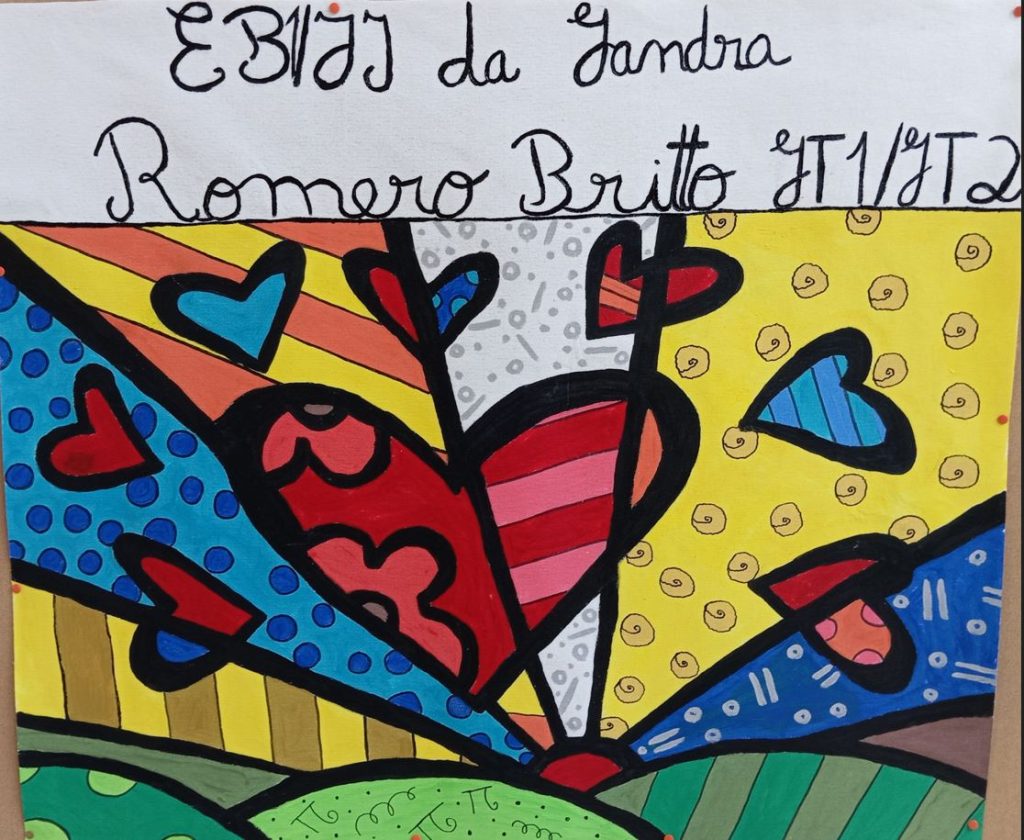 EB1/JI da Gandra
Romero Britto GT1/GT2